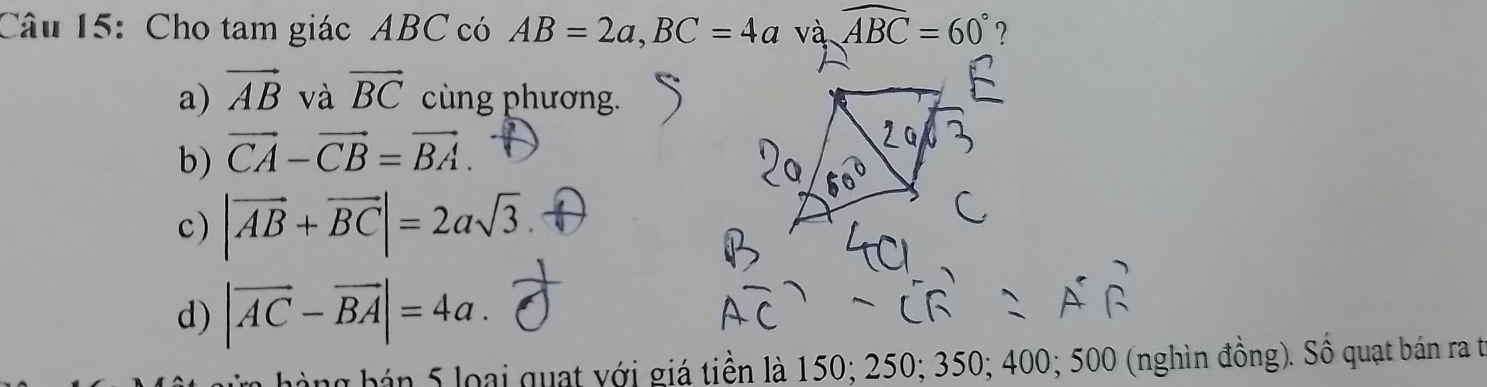 Câu 15: Cho tam giác ABC có AB = 2a, BC = 4a và \widehat{ABC} = 60°?
a) \overrightarrow{AB} và \overrightarrow{BC} cùng phương. S
b) \overrightarrow{CA} − \overrightarrow{CB} = \overrightarrow{BA}. Đ
c) |\overrightarrow{AB} + \overrightarrow{BC}| = 2a√3. Đ
d) |\overrightarrow{AC} − \overrightarrow{BA}| = 4a.
E
2a√3
2a 60°
C
B 4a
hàng bán 5 loại quạt với giá tiền là 150; 250; 350; 400; 500 (nghìn đồng). Số quạt bán ra